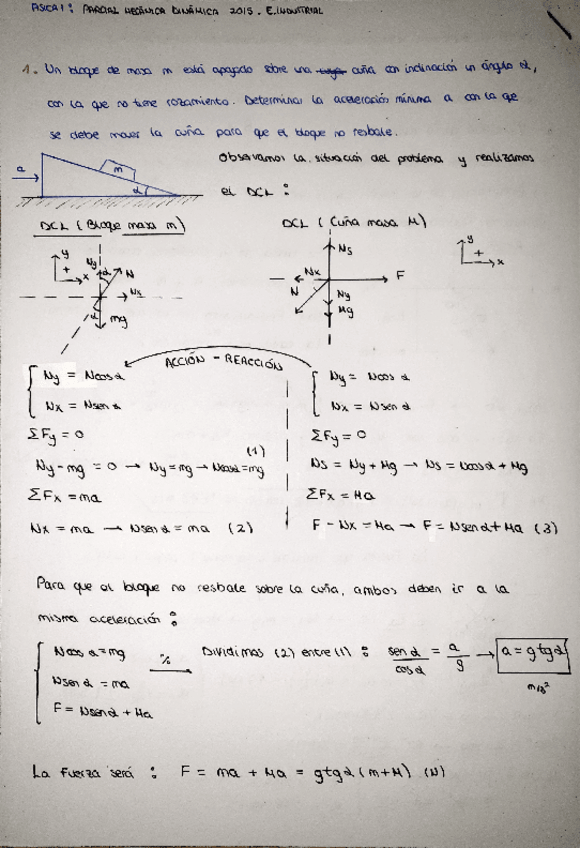 FISICA I: PARCIAL MECÁNICA DINÁMICA 2015. E.INDUSTRIAL
1. Un bloque de masa m está apoyado sobre una cuña con inclinación un ángulo α,
con la que no tiene rozamiento. Determinar la aceleración mínima a con la que
se debe mover la cuña para que el bloque no resbale.
Observamos la situación del problema y realizamos
el DCL:
a
m
α
DCL (Bloque masa m)
DCL (Cuña masa M)
y
x
+
Ny
α
N
Nx
α
mg
Ns
Nx
F
N
Ny
Mg
y
+
x
ACCIÓN - REACCIÓN
Ny = Ncosα
Nx = Nsenα
ΣFy = 0
Ny - mg = 0 → Ny = mg → Ncosα = mg (1)
ΣFx = ma
Nx = ma → Nsenα = ma (2)
Ny = Ncosα
Nx = Nsenα
ΣFy = 0
Ns = Ny + Mg → Ns = Ncosα + Mg
ΣFx = Ma
F - Nx = Ma → F = Nsenα + Ma (3)
Para que el bloque no resbale sobre la cuña, ambos deben ir a la
misma aceleración:
Ncosα = mg
Nsenα = ma
F = Nsenα + Ma
% Dividimos (2) entre (1): senα/cosα = a/g → a = gtgα
m/s²
La fuerza será: F = ma + Ma = gtgα(m+M) (N)